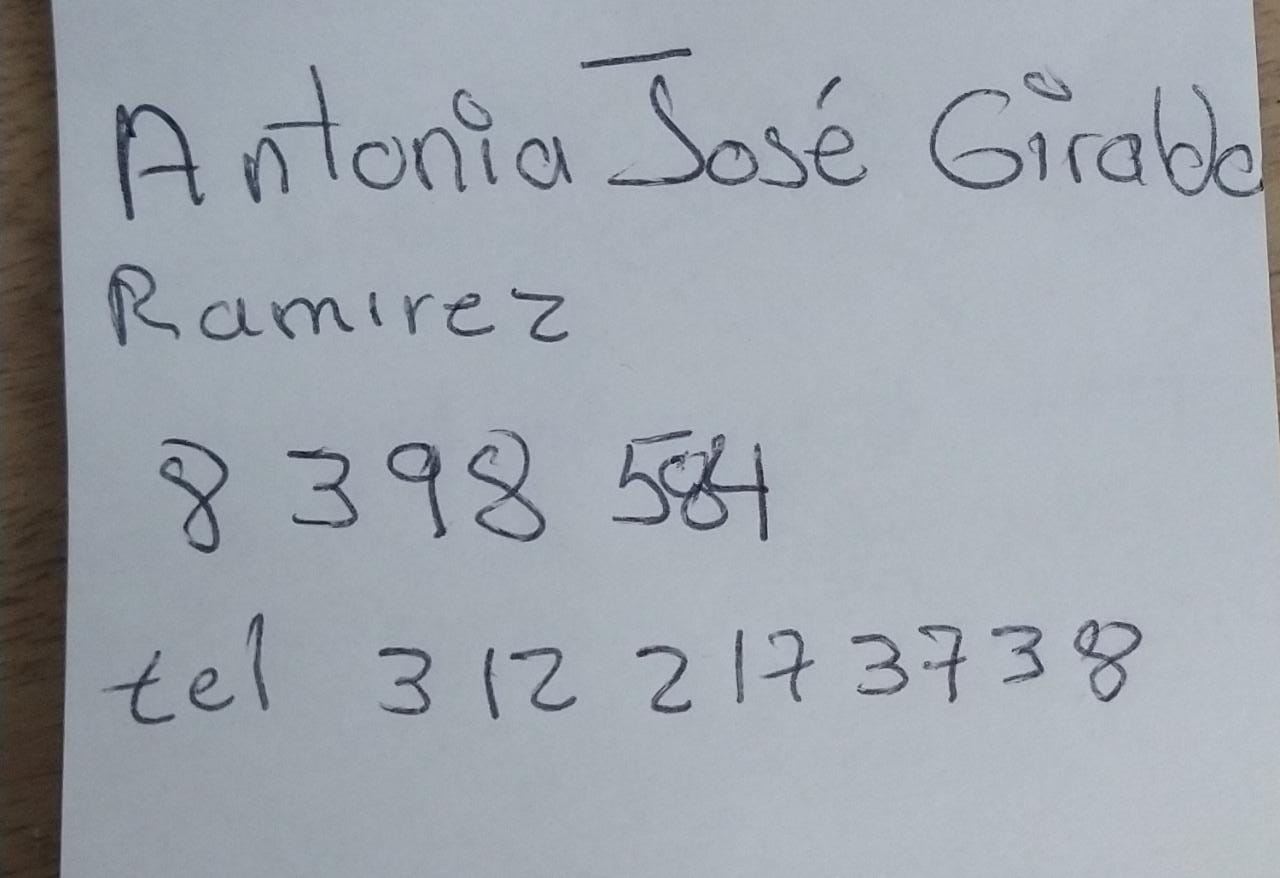 Antonia José Giraldo
Ramirez
8 398 584
tel 312 2173738